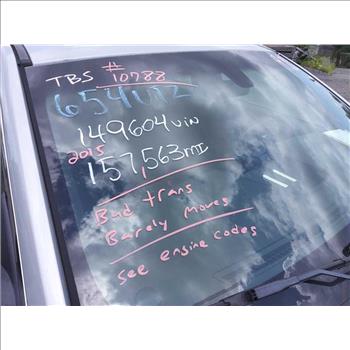 TBS # 10788
654UTZ
149604 VIN
2015
157,563 MI
Bad trans
Barely moves
See engine codes